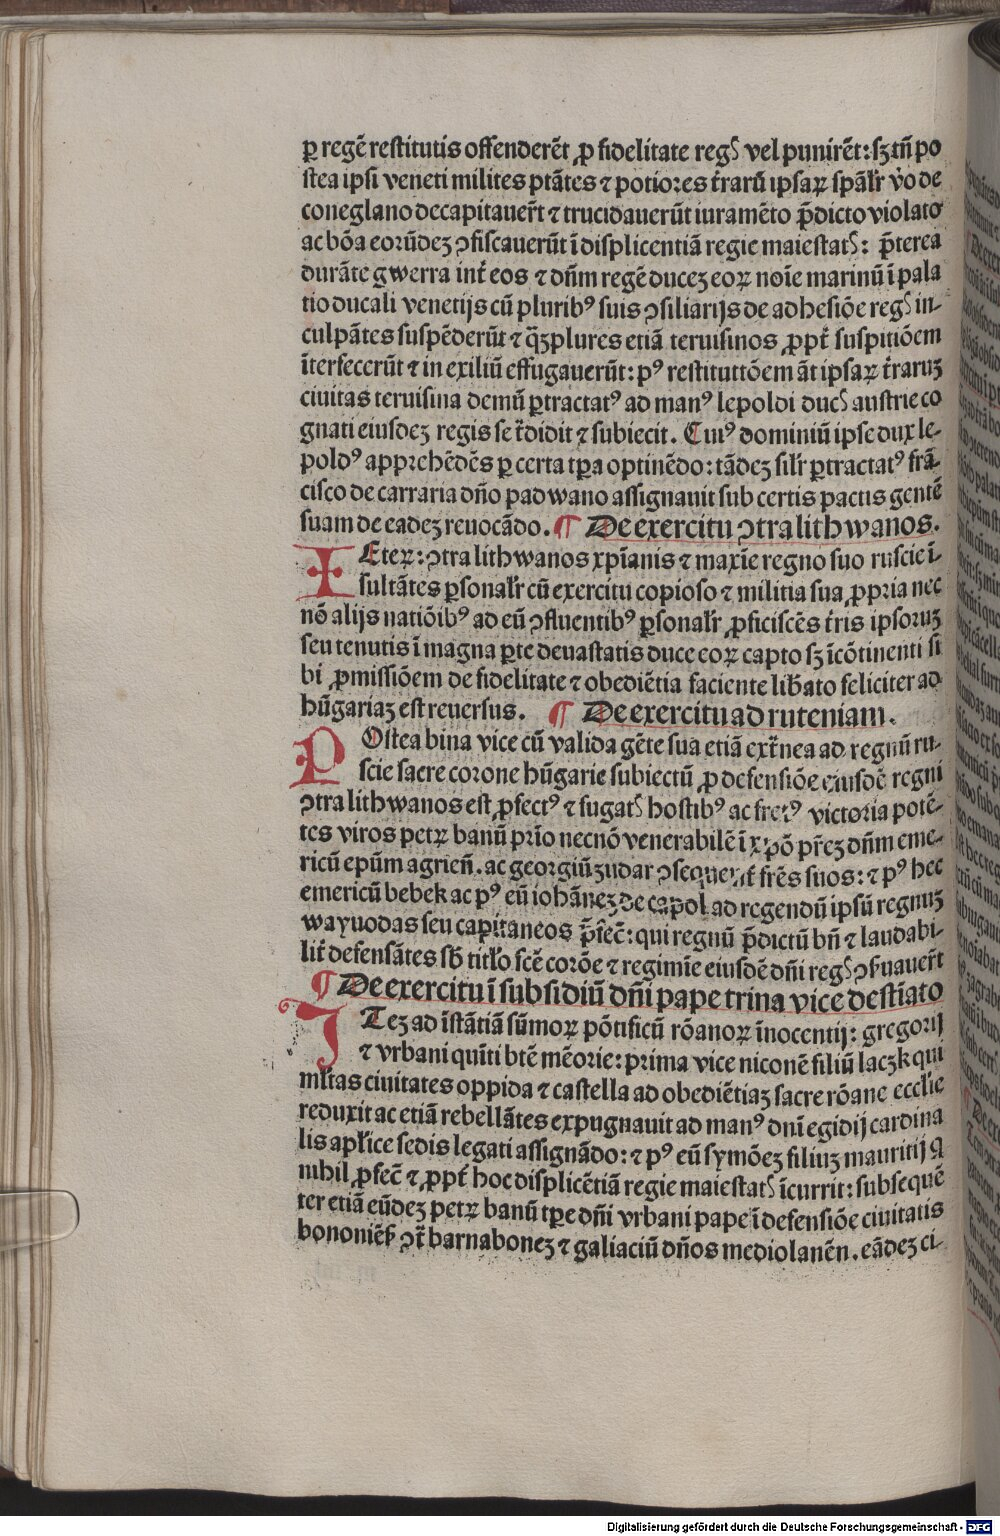 ꝑ regē restitutis offenderēt ꝓ fidelitate regꝭ vel punirēt: sꝫ tm̄ po
stea ipsi veneti milites ptātes ⁊ potiores t̄rarū ipsaꝝ spāl'r v̓o de
coneglano decapitauer̄t ⁊ trucidauerūt iuramēto p̄dicto violato
ac bōa eorūdeꝫ ꝯfiscauerūt ī displicentiā regie maiestatꝭ: p̄terea
durāte gwerra int̄ eos ⁊ dn̄m regē duceꝫ eoꝝ noīe marinū ī pala
tio ducali venetijs cū pluribꝰ suis ꝯsiliarijs de adhesiōe regꝭ in-
culpātes suspēderūt ⁊ qꝫplures etiā teruisinos ꝓpt̄ suspitiōem
īterfecerūt ⁊ in exiliū effugauerūt: pꝰ restituttōem āt ipsaꝝ t̄raruꝫ
ciuitas teruisina demū ꝑtractatꝰ ad manꝰ lepoldi ducꝭ austrie co
gnati eiusdeꝫ regis se t̄didit ⁊ subiecit. Cuiꝰ dominiū ipse dux le-
poldꝰ apprehēdēs ꝑ certa tꝑa optinēdo: tādeꝫ sil'r ꝑtractatꝰ frā-
cisco de carraria dn̄o padwano assignauit sub certis pactis gentē
suam de eadeꝫ reuocādo. ¶ De exercitu ꝯtra lithwanos.
I Eteꝝ: ꝯtra lithwanos xp̄ianis ⁊ maxīe regno suo ruscie ī-
sultātes ꝑsonal'r cū exercitu copioso ⁊ militia sua ꝓpria nec
nō alijs natiōibꝰ ad eū ꝯfluentibꝰ ꝑsonal'r ꝓficiscēs t̄ris ipsoruꝫ
seu tenutis ī magna ꝑte deuastatis duce eoꝝ capto sꝫ īcōtinenti si
bi ꝓmissiōem de fidelitate ⁊ obediētia faciente lib̄ato feliciter ad
hūgariaꝫ est reuersus. ¶ De exercitu ad ruteniam.
P Ostea bina vice cū valida gēte sua etiā ext̄nea ad regnū ru-
scie sacre corone hūgarie subiectū ꝓ defensiōe eiusdē regni
ꝯtra lithwanos est ꝓfectꝰ ⁊ fugatꝭ hostibꝰ ac fretꝰ victoria potē-
tes viros petꝝ banū prīo necnō venerabilē ī xp̄o pr̄eꝫ dn̄m eme-
ricū ep̄um agrien̄. ac georgiū zudar ꝯsequent̄ fr̄es suos: ⁊ pꝰ hec
emericū bebek ac pꝰ eū iohāneꝫ de capol ad regendū ipsū regnuꝫ
wayuodas seu capitaneos p̄fec̄: qui regnū p̄dictū bn̄ ⁊ laudabi-
lit̄ defensātes sb̄ titl'o scē corōe ⁊ regimīe eiusdē dn̄i regꝭ ꝯẜuauer̄t
¶ De exercitu ī subsidiū dn̄i pape trina vice destīato
I Teꝫ ad īstātiā sūmoꝝ pōtificū rōanoꝝ īnocentij: gregorij
⁊ vrbani quīti btē mēorie: prima vice niconē filiū laczk qui
ml'tas ciuitates oppida ⁊ castella ad obediētiaꝫ sacre rōane eccl'ie
reduxit ac etiā rebellātes expugnauit ad manꝰ dnī egidij cardina
lis apl'ice sedis legati assignādo: ⁊ pꝰ eū symōeꝫ filiuꝫ mauritij q̄
nihil ꝓfec̄ ⁊ ꝓpt̄ hoc displicētiā regie maiestatꝭ īcurrit: subsequē
ter etiā eūdeꝫ petꝝ banū tꝑe dn̄i vrbani pape ī defensiōe ciuitatis
bononiēẜ ꝯt̄ barnaboneꝫ ⁊ galiaciū dn̄os mediolanēn. eādeꝫ ci-
Digitalisierung gefördert durch die Deutsche Forschungsgemeinschaft - DFG